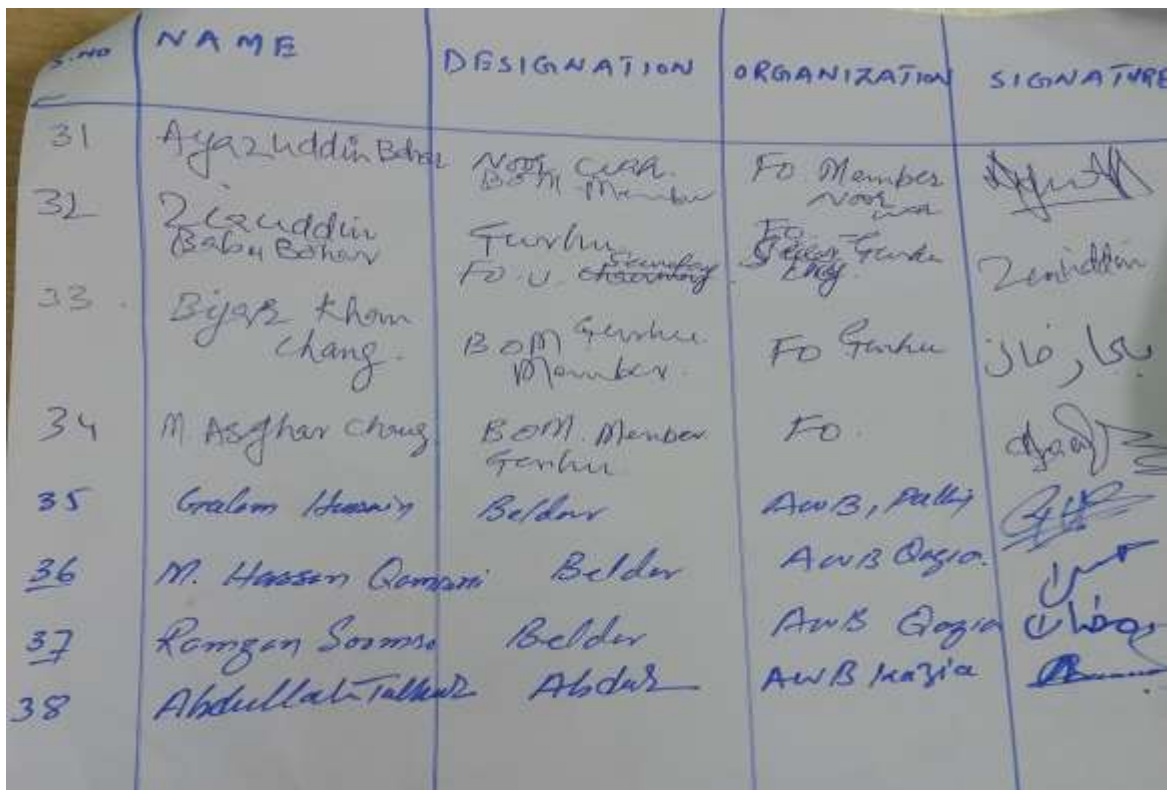 S.NO NAME DESIGNATION ORGANIZATION SIGNATURE
31 Ayazuddin Noor BOM Member FO Member Noor
32 Ziauddin Babu Bohar Gurhu FO. U. FO Gurhu Ziauddin
33 Bijar Khan Chang. BOM Gurhu Member. FO Gurhu بجار خان
34 M. Asghar Chang BOM. Member Gurhu FO.
35 Gulam Hussain Beldar AWB,
36 M. Hassan Qambrani Beldar AWB Qazia. حسن
37 Ramzan Soomro Beldar AWB Qazia رمضان
38 Abdullah Talhur Abdar AWB Kazia